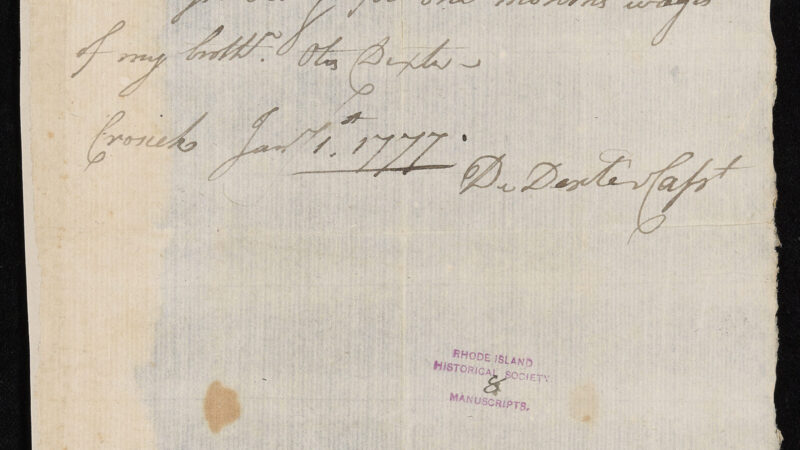 for one months wages
of my brothr. Otis Dexter
Crosich Jany 1st. 1777.
Dexter Capt
RHODE ISLAND
HISTORICAL SOCIETY
8
MANUSCRIPTS.